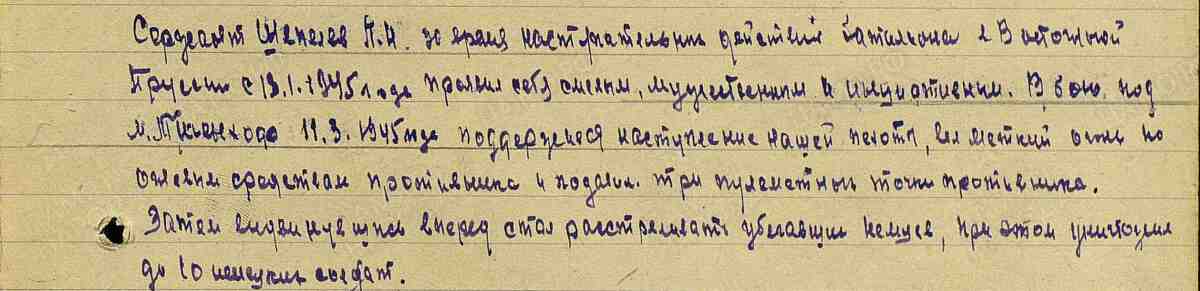 Сержант Шепелев П.И. за время наступательных действий батальона в Восточной
Пруссии с 13.1.1945 года проявил себя смелым, мужественным и инициативным. В бою под
м. 11.3.1945 года поддерживая наступление нашей пехоты, вел меткий огонь по
огневым средствам противника и подавил три пулеметных точки противника.
Затем выдвинувшись вперед стал расстреливать убегавших немцев, при этом уничтожил
до 10 немецких солдат.